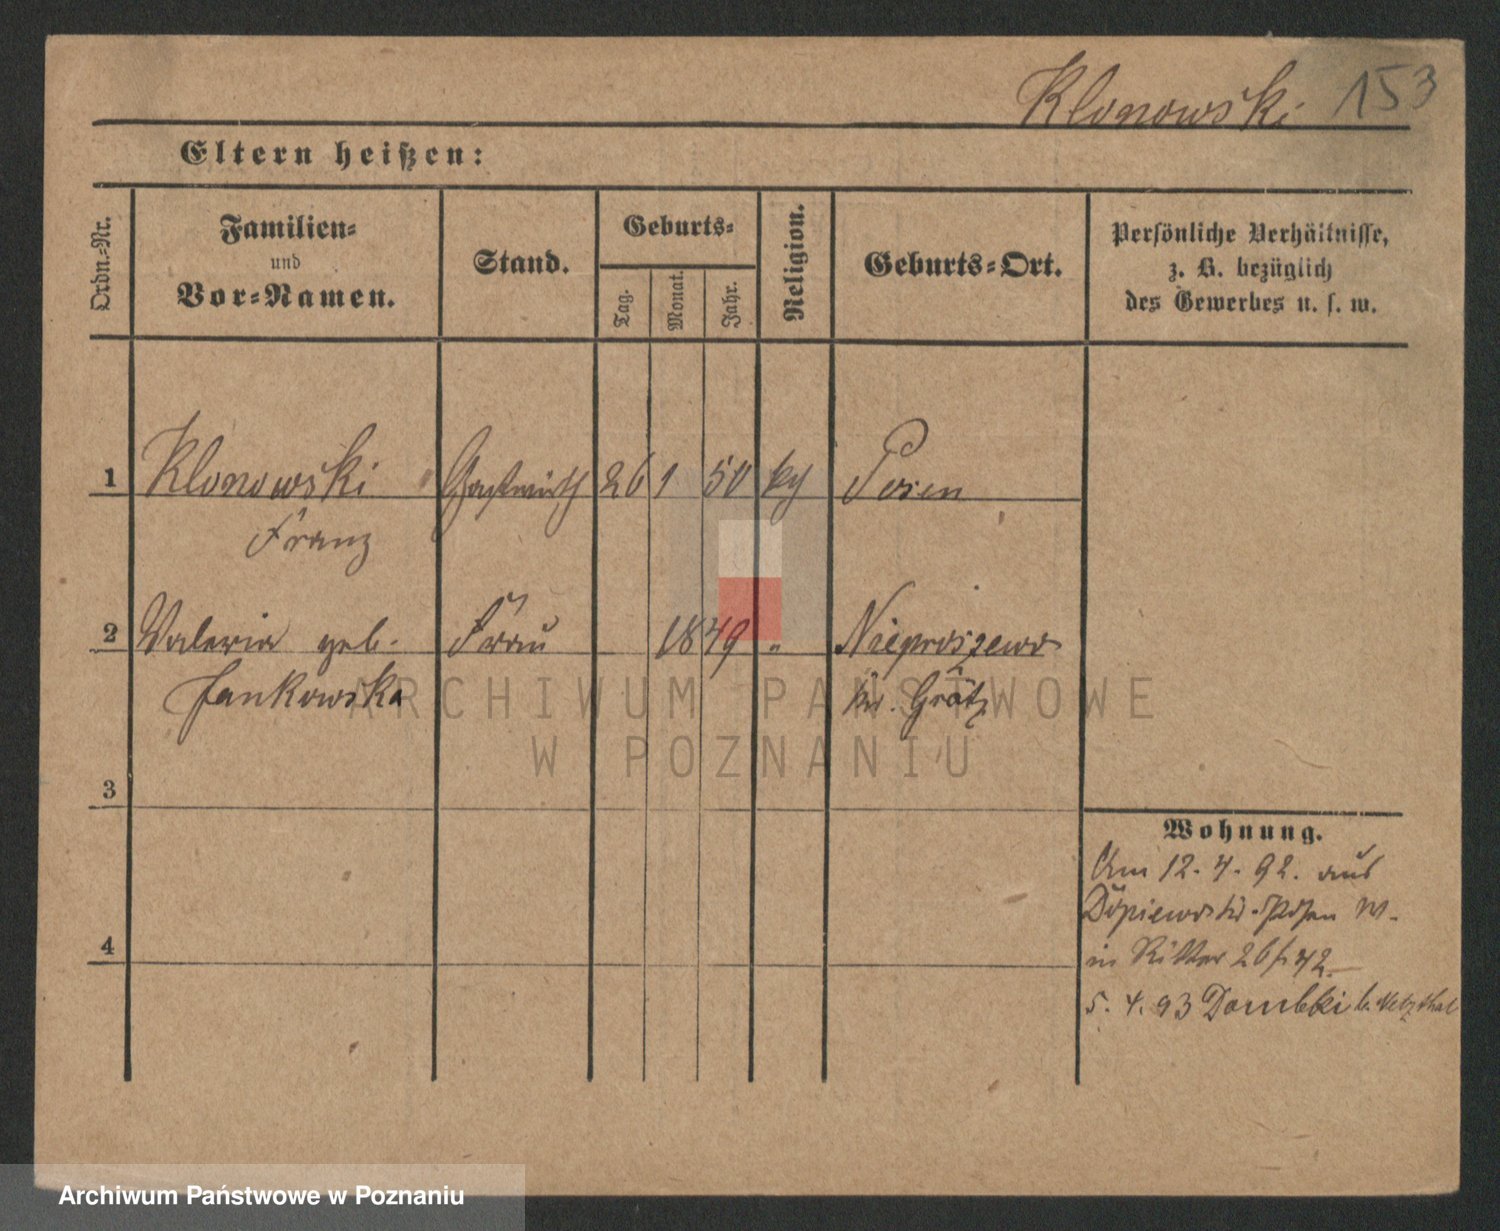 Klonowski 153
Eltern heißen:
Ordn.-Nr.
Familien-
und
Vor-Namen.
Stand.
Geburts-
Tag.
Monat.
Jahr.
Religion.
Geburts-Ort.
Persönliche Verhältnisse,
z. B. bezüglich
des Gewerbes u. s. w.
1 Klonowski Gastwirth 26 1 50 kth Posen
Franz
2 Valeria geb. Frau 1849 " Nieproszewo
Jankowska Kr. Grätz
ARCHIWUM PAŃSTWOWE
W POZNANIU
3
Wohnung.
Am 12. 4. 92. aus
Posen W.
4
in Ritter 26/42
5. 4. 93 Dombki b. Netzthal
Archiwum Państwowe w Poznaniu